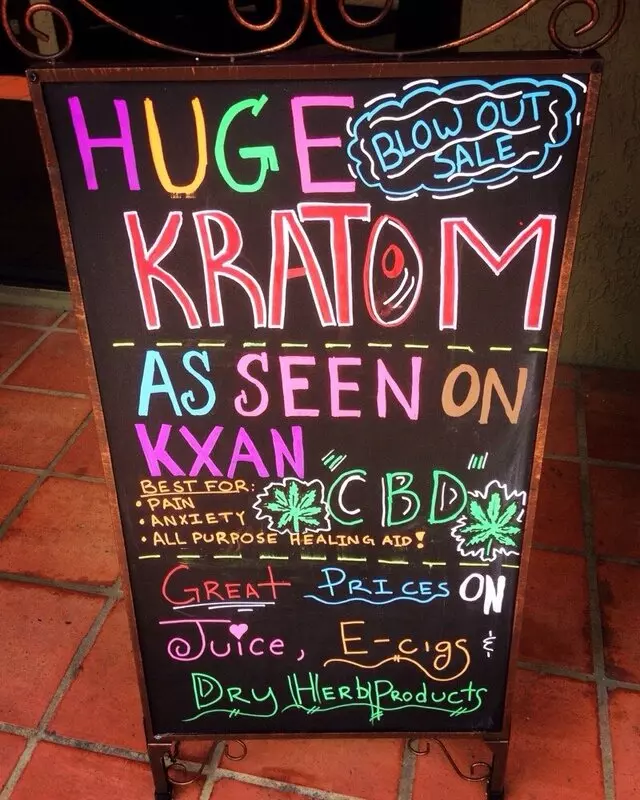 HUGE
BLOW OUT
SALE
KRATOM
AS SEEN ON
KXAN
"CBD"
BEST FOR:
• PAIN
• ANXIETY
• ALL PURPOSE HEALING AID!
GREAT PRICES ON
JUICE, E-CIGS &
DRY HERB PRODUCTS